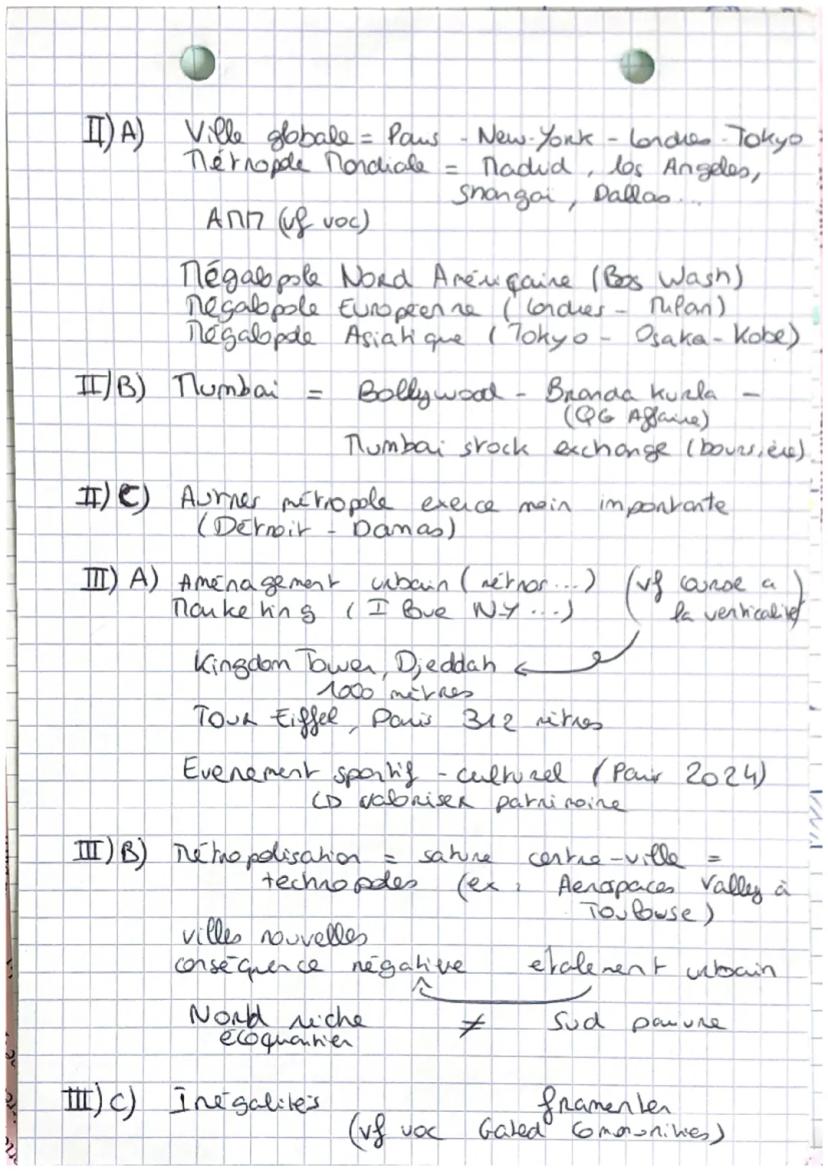 II) A) Ville globale = Paris - New-York - Londres - Tokyo
Métropole Mondiale = Madrid, los Angeles,
Shangai, Dallas...
AMM (vf voc)
Mégalopole Nord Américaine (Bos Wash)
Mégalopole Européenne (Londres - Milan)
Mégalopole Asiatique (Tokyo - Osaka - Kobe)
II) B) Mumbai = Bollywood - Branda Kurla -
(QG Affaire)
Mumbai stock exchange (boursière)
II) C) Autres métropole exerce moin importante
(Détroit - Damas)
III) A) Aménagement urbain (métros...) (vf course a
Marketing (I love NY...) la verticalité)
Kingdom Tower, Djeddah
1000 mètres
Tour Eiffel, Paris 312 mètres
Evenement sportif - culturel (Paris 2024)
↳ valoriser patrimoine
III) B) Métropolisation = sature centre-ville =
technopoles (ex : Aerospaces Valley à
Toulouse)
villes nouvelles
conséquence négative etalement urbain
Nord riche ≠ Sud pauvre
écoquartier
III) C) Inégalités framenter
(vf voc Gated Communities)